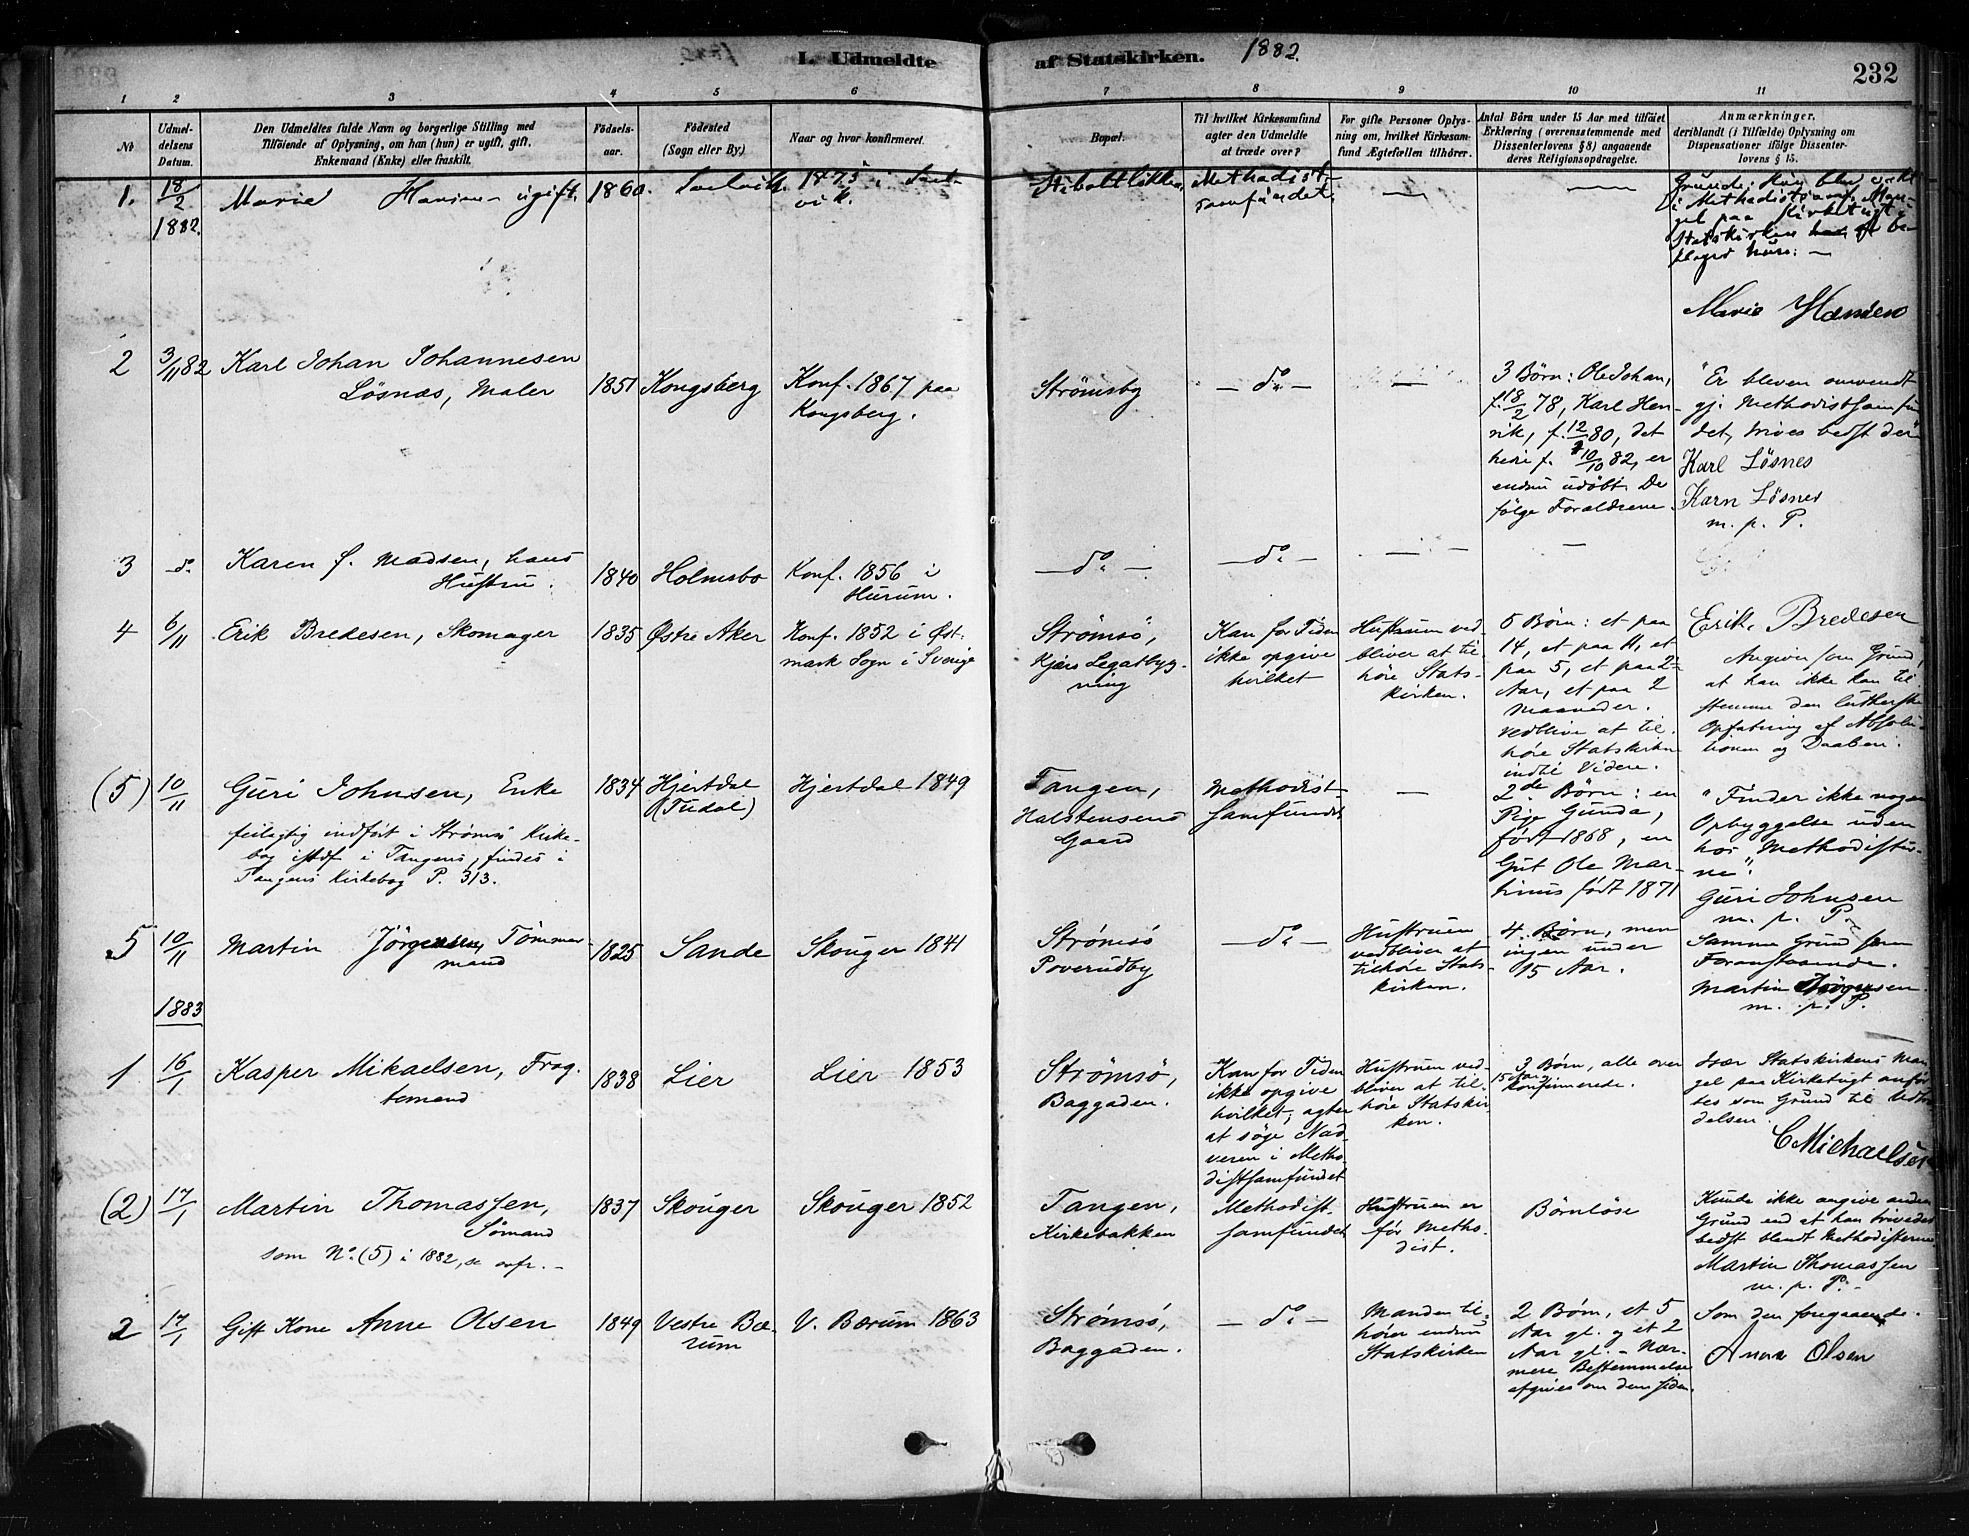 L. Udmeldte af Statskirken. 1882.
232
1 2 3 4 5 6 7 8 9 10 11
No
Udmel-
delsens
Datum.
Den Udmeldtes fulde Navn og borgerlige Stilling med
Tilføiende af Oplysning, om han (hun) er ugift, gift,
Enkemand (Enke) eller fraskilt.
Fødsels-
aar.
Fødested
(Sogn eller By.)
Naar og hvor konfirmeret.
Bopæl.
Til hvilket Kirkesamfund
agter den Udmeldte
at træde over?
For gifte Personer Oplys-
ning om, hvilket Kirkesam-
fund Ægtefællen tilhører.
Antal Børn under 15 Aar med tilføiet
Erklæring (overensstemmende med
Dissenterlovens § 8) angaaende
deres Religionsopdragelse.
Anmærkninger,
deriblandt (i Tilfælde) Oplysning om
Dispensationer ifølge Dissenter-
lovens § 15.
1. 18/2
1882.
Marie Hansen - ugift.
1860.
Svelvik.
1875 i Svel-
vik.
Methodist-
samfundet.
—
—
Grunde: Hun blev vakt
i Methodistsamf. Man-
gel paa Kirketugt i
Statskirken
Marie Hansen
2
3/11 82
Karl Johan Johannesen
Lösnæs, Maler
1851
Kongsberg
Konf. 1867 paa
Kongsberg.
Strömsby
— do —
—
3 Børn: Ole Johan,
f. 18/2 78, Karl Hen-
rik, f. 12/ 80, det
tredie f. 10/10 82, er
endnu udöbt. De
følge Forældrene.
"Er bleven omvendt
gj. Methodistsamfun
det, trives bedst der"
Karl Lösnes
Karn Lösnes
m. p. P.
3
do
Karen f. Madsen, hans
Hustru.
1840
Holmsbo
Konf. 1856 i
Hurum.
— do —
— do —
—
—
4
6/11
Erik Bredesen, Skomager
1835
Østre Aker
Konf. 1852 i Øst-
mark Sogn i Sverige
Strömsö,
Kjers Legatbyg-
ning
Kan for Tiden
ikke opgive
hvilket
Hustruen ved-
bliver at til-
höre Stats-
kirken.
5 Børn: et paa
14, et paa 11, et
paa 5, et paa 2
Aar, et paa 2
Maaneder.
vedblive at til-
höre Statskirken
indtil Videre.
Erik Bredesen
Angiver som Grund,
at han ikke kan til
stemme den lutherske
Opfatning af Absolu-
tionen og Daaben.
(5)
10/11
Guri Johnsen, Enke
feilagtig indfört i Strömsö Kirke-
bog istdf i Tangens, findes i
Tangens Kirkebog P. 313.
1834
Hjertdal
(Tudal)
Hjertdal 1849
Tangen,
Halstensens
Gaard
Methodist-
samfundet
—
2de Børn: en
Pige Gunda,
født 1868, en
Gut Ole Mar-
tinus født 1871
"Finder ikke nogen
Opbyggelse uden
hos Methodister-
ne".
Guri Johnsen
m. p. P.
5
10/11
Martin Jörgensen, Tömmer-
mand
1825
Sande
Skouger 1841
Strömsö
Poverudby
— do —
Hustruen
vedbliver at
tilhöre Stats-
kirken.
4 Børn, men
ingen under
15 Aar.
Samme Grund som
Foranstaaende.
Martin Jörgensen.
m. p. P.
1883
1
16/1
Kasper Mikaelsen, Frag-
temand
1838
Lier
Lier 1853
Strömsö,
Baggaden.
Kan for Tiden
ikke opgive
hvilket; agter
at söge Nad-
veren i Metho-
distsamfundet
Hustruen ved-
bliver at til-
höre Statskir-
ken.
3 Børn, alle over
15 Aar,
konfirmerede.
Især Statskirkens Man
gel paa Kirketugt anför-
tes som Grund til Udtræ
delsen.
C Michaelsen
(2)
17/1
Martin Thomassen,
Sömand
som No. (5) i 1882, se ovfr. -
1837
Skouger
Skouger 1852
Tangen,
Kirkebakken
Methodist-
samfundet
Hustruen er
för Metho-
dist.
Børnlöse
Kunde ikke angive anden
Grund end at han trivedes
bedst blandt Methodisterne.
Martin Thomassen
m. p. P. -
2
17/1
Gift Kone Anne Olsen
1849
Vestre Bæ-
rum
V. Bærum 1863
Strömsö,
Baggaden.
— do —
Manden til-
hörer endnu
Statskirken
2 Børn, et 5
Aar gl. og et 2
Aar gl. - Nær-
mere Bestemmelse
afgives om dem siden.
Som den foregaaende.
Anne Olsen